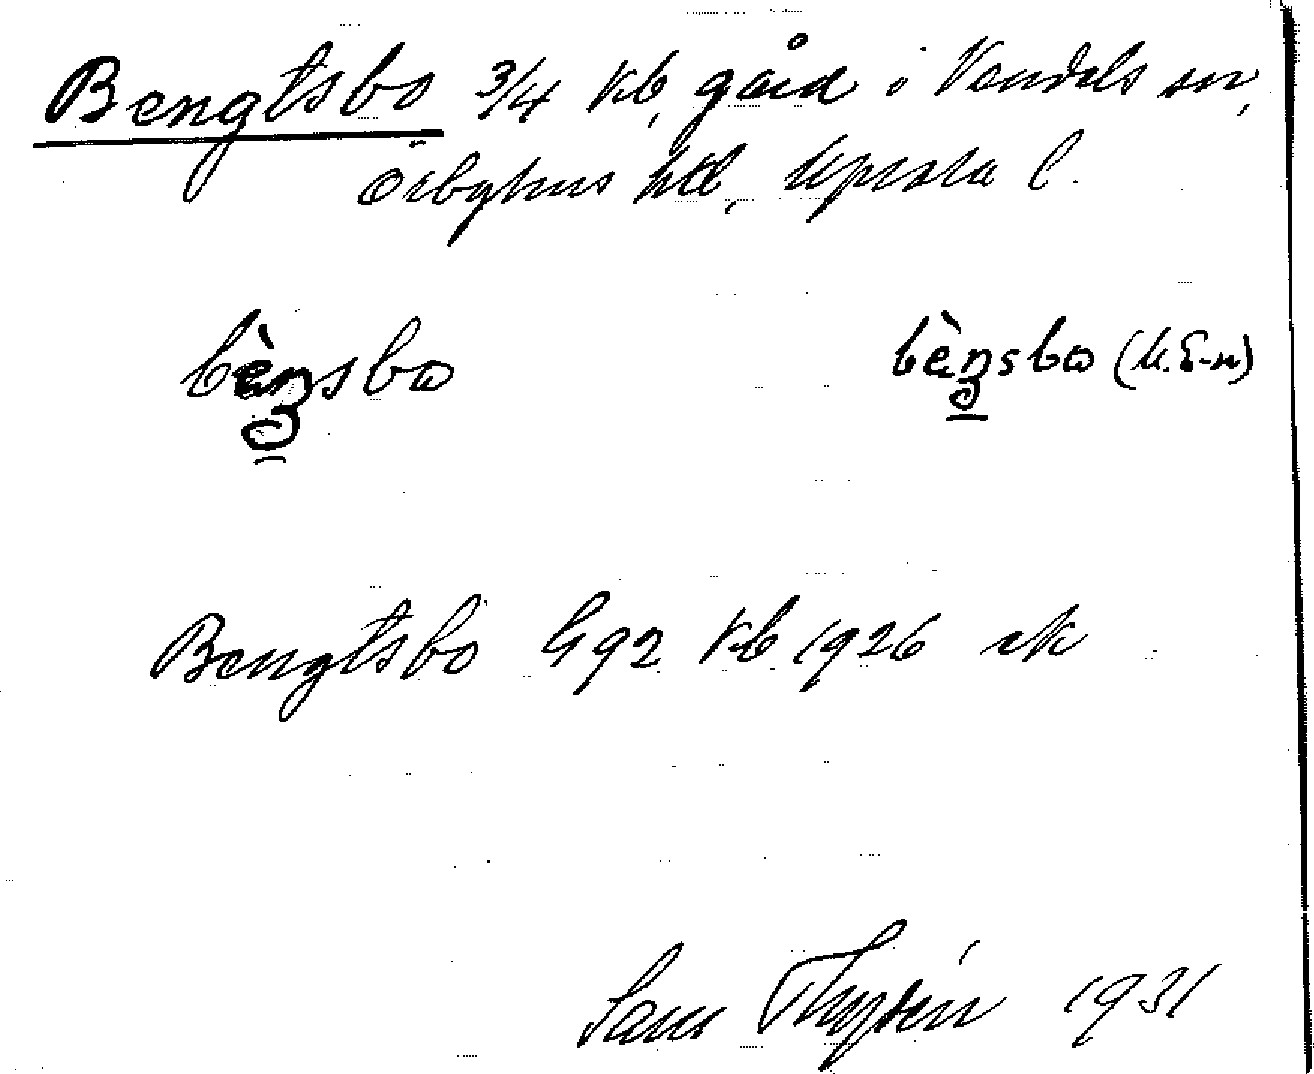 Bengtsbo 3/4 Kb, gård i Vendels sn,
Örbyhus hd, Upsala l.
bèŋsbo bèŋsbo (M. E-n)
Bengtsbo G92 Kb 1926 ek
Sam Thysén 1931